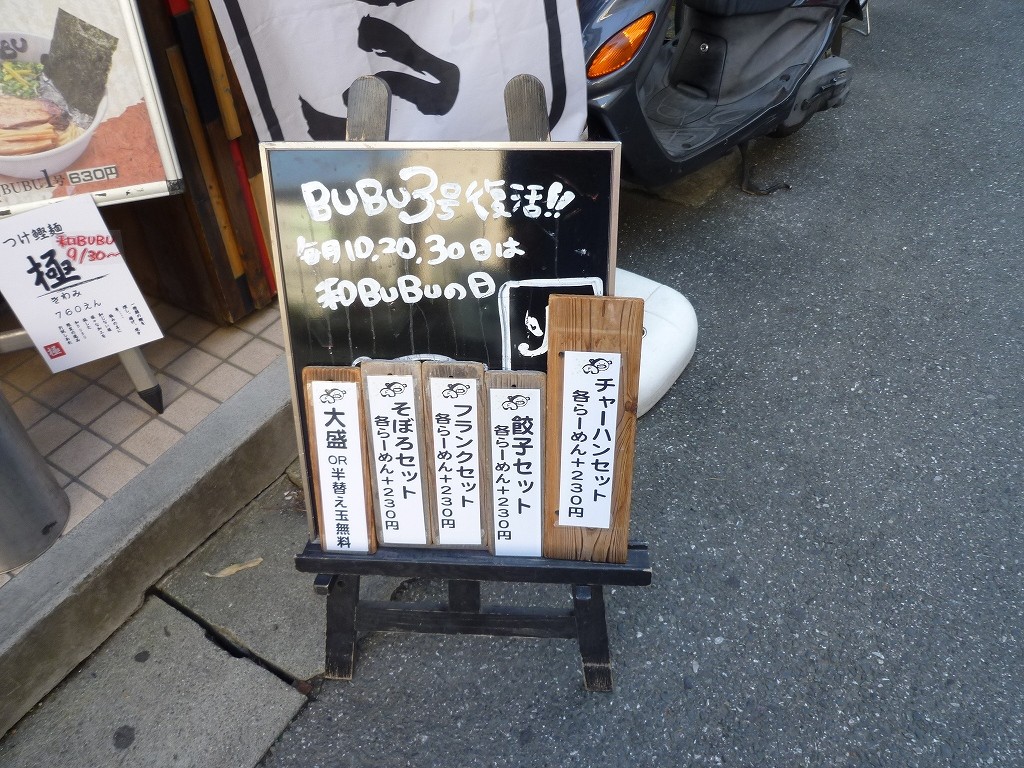 BUBU3号復活!!
毎月10,20,30日は
和BUBUの日
大盛OR半替え玉無料
そぼろセット
各らーめん+230円
フランクセット
各らーめん+230円
餃子セット
各らーめん+230円
チャーハンセット
各らーめん+230円
BUBU1号630円
つけ鰹麺
和BUBU
9/30〜
極
きわみ
760えん
極